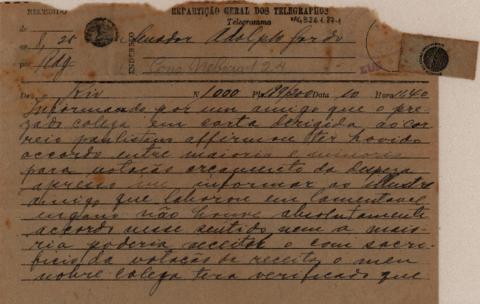 RECEBIDO
REPARTIÇÃO GERAL DOS TELEGRAPHOS
Telegramma
de
ás
por
ENDEREÇO
Senador Adolpho Gordo
Cons Nebias 24
De Rio N 1000 Pls Data 10 Hora 1640
Informado por um amigo que o pre-
zado colega em carta dirigida ao cor-
reio paulistano affirmou ter havido
accordo entre maioria e minoria
para votação orçamento da despeza
apresso me informar ao illustre
amigo que laborou em lamentavel
engano não houve absolutamente
accordo nesse sentido nem a maio-
ria poderia acceitar o com sacri-
ficio da votação da receita o meu
nobre colega tera verificado que